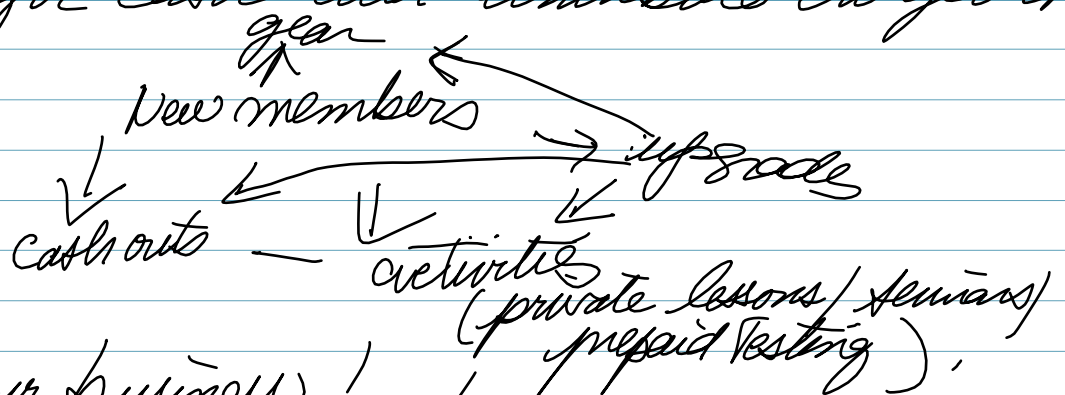 gear
New members
upgrades
cash outs — activities
(private lessons/seminars/
prepaid Testing).
business